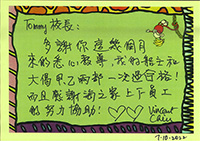 Tommy校長：
多謝你這幾個月
來的悉心教導，我的船主牌
大偈甲乙兩部一次過合格！
而且感謝海之務上下員工
的努力協助！
Vincent
Chiu
7-10-2022